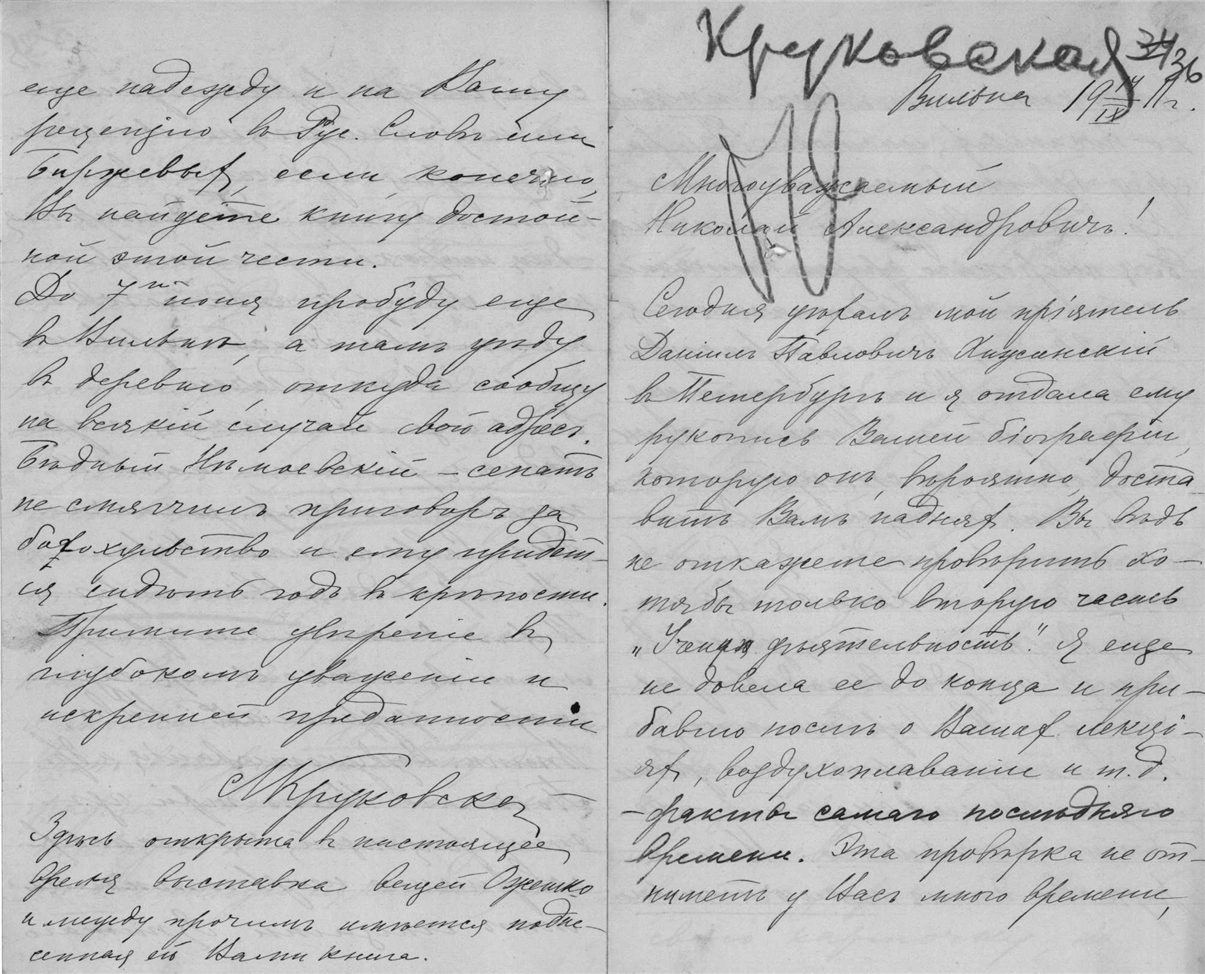 Круковская
Вильна 19 11 г.
Многоуважаемый
Николай Александровичъ!
Сегодня уѣхалъ мой пріятель
Даніилъ Павловичъ
въ Петербургъ и я отдала ему
рукопись Вашей біографіи,
которую онъ, вѣроятно, доста
витъ Вамъ надняхъ. Вы вѣдь
не откажете провѣрить хо-
тябы только вторую часть
"Учен дѣятельность". Я еще
не довела ее до конца и при-
бавлю послѣ о Вашихъ лекці-
яхъ, воздухоплаваніи и т.д.
- факты самаго послѣдняго
времени. Эта провѣрка не от-
ниметъ у Васъ много времени,
еще надежду и на Вашу
рецензію въ Рус. Словѣ или
Биржевыхъ, если конечно,
Вы найдете книгу достой-
ной этой чести.
До 7го іюня пробуду еще
въ Вильнѣ, а тамъ уѣду
въ деревню, откуда сообщу
на всякій случай свой адресъ.
Бѣдный Нѣмоевскій – сенатъ
не смягчилъ приговоръ за
богохульство и ему придет-
ся сидѣть годъ въ крѣпости.
Примите увѣреніе въ
глубокомъ уваженіи и
искренней преданности
МКруковская
Здѣсь открыта въ настоящее
время выставка вещей Ожешко
и между прочимъ имѣется подне-
сенная ей Вами книга.